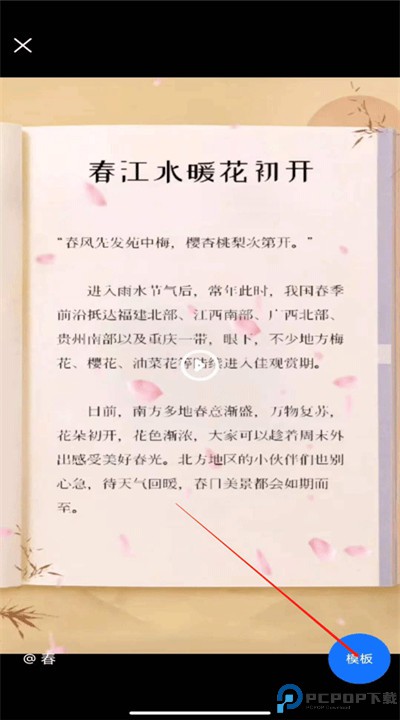 春江水暖花初开
“春风先发苑中梅，樱杏桃梨次第开。”
进入雨水节气后，常年此时，我国春季
前沿抵达福建北部、江西南部、广西北部、
贵州南部以及重庆一带，眼下，不少地方梅
花、樱花、油菜花等陆续进入佳观赏期。
日前，南方多地春意渐盛，万物复苏，
花朵初开，花色渐浓，大家可以趁着周末外
出感受美好春光。北方地区的小伙伴们也别
心急，待天气回暖，春日美景都会如期而
至。
@ 春
模板
PCPOP下载